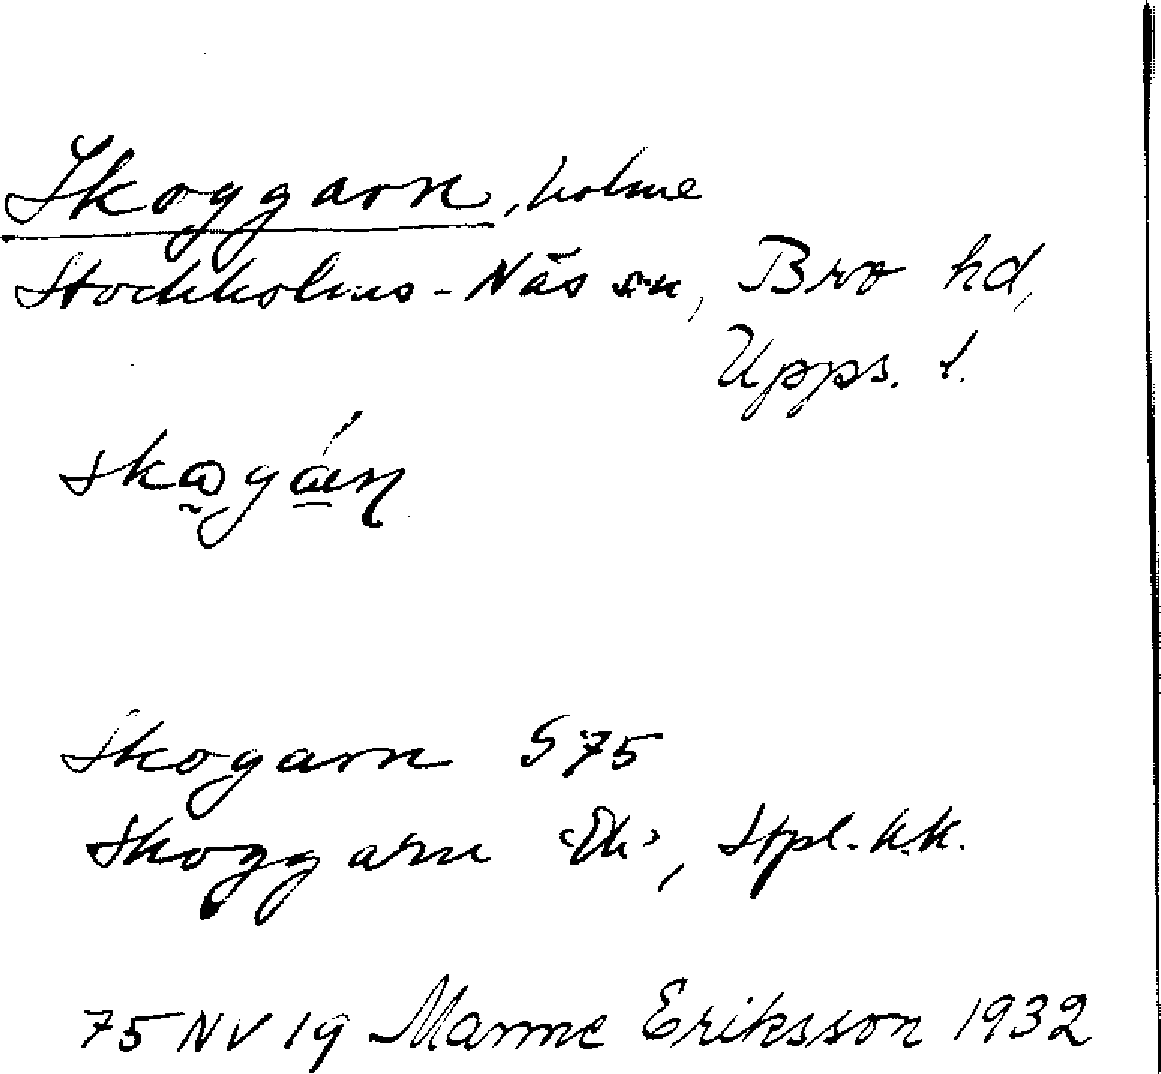 Skoggarn, holme
Stockholms-Näs sn, Bro hd,
Upps. l.
Skogarn S 75
Skoggarn Ek, Stpl. k.k.
75 NV 19 Manne Eriksson 1932